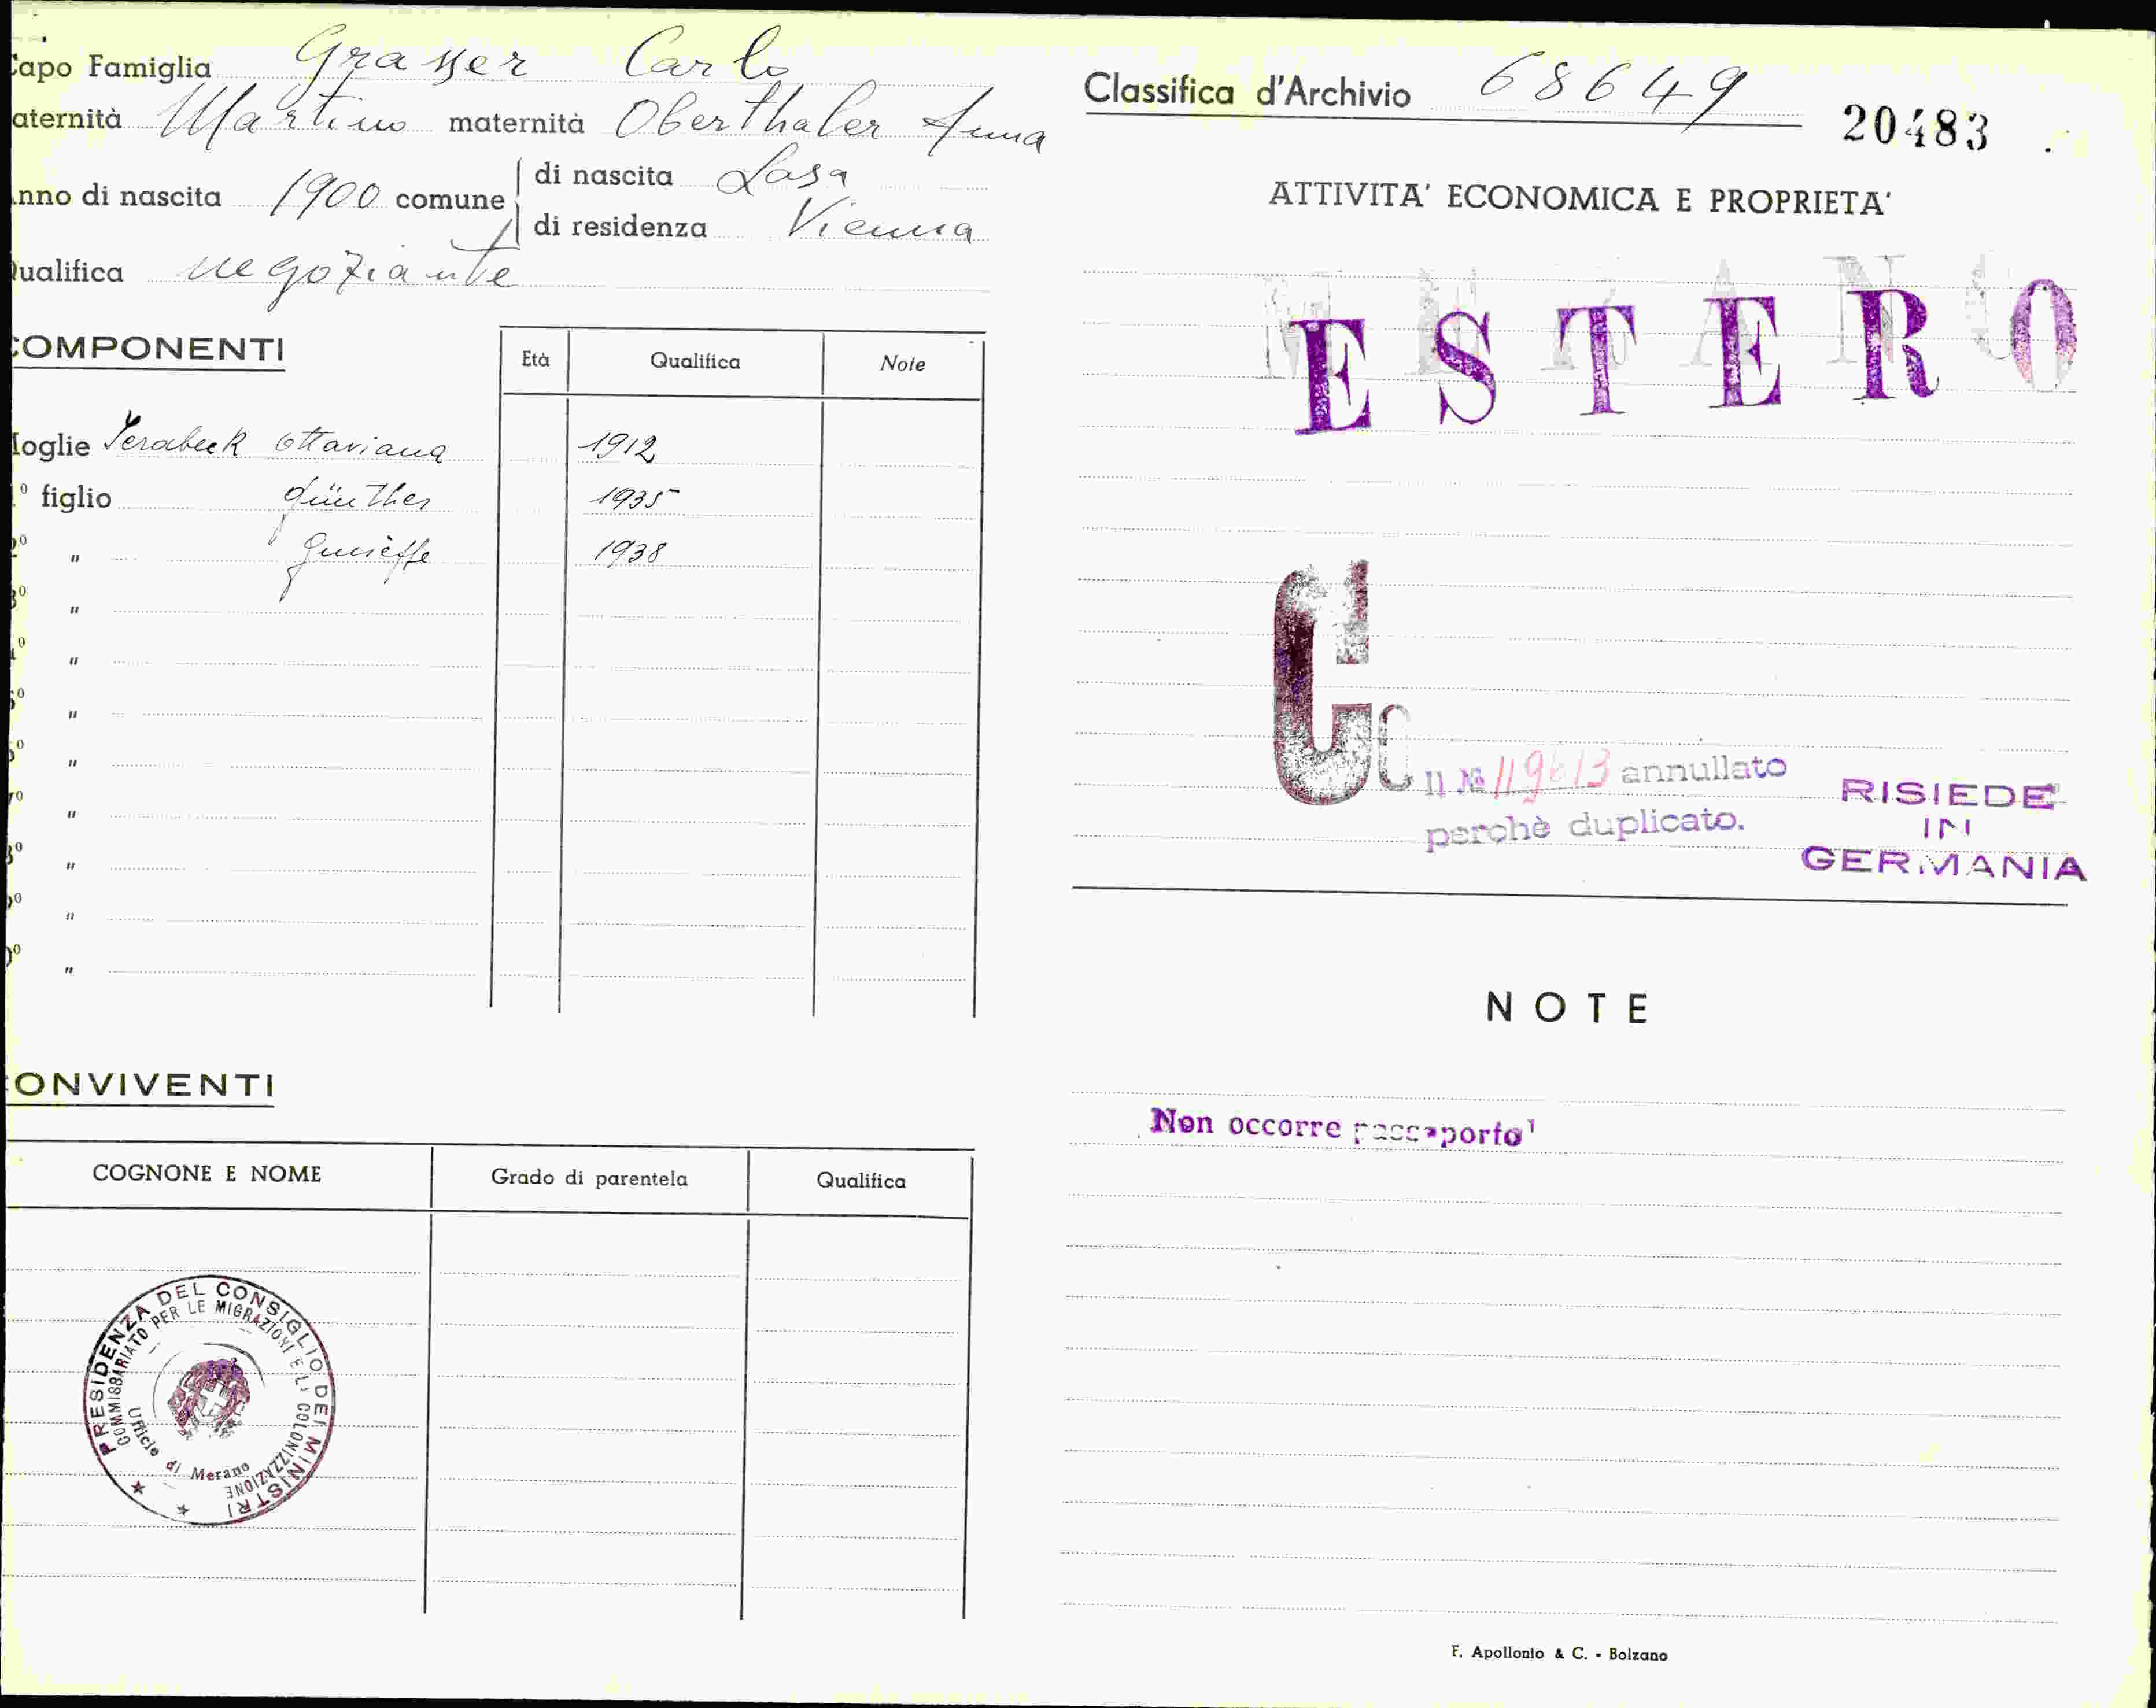 Capo Famiglia Grasser Carlo
aternità Martino maternità Oberthaler Anna
nno di nascita 1900 comune di nascita Lasa
di residenza Vienna
ualifica negoziante
COMPONENTI
Età Qualifica Note
oglie Ottaviana 1912
° figlio Günther 1935
2° " 1938
3° "
4° "
5° "
6° "
7° "
8° "
9° "
0° "
CONVIVENTI
COGNONE E NOME Grado di parentela Qualifica
PRESIDENZA DEL CONSIGLIO DEI MINISTRI
COMMISSARIATO PER LE MIGRAZIONI E L' COLONIZZAZIONE
Ufficio di Merano
Classifica d'Archivio 68649
20483
ATTIVITA' ECONOMICA E PROPRIETA'
MERANO
ESTERO
C
Il № 119613 annullato
perchè duplicato.
RISIEDE
IN
GERMANIA
NOTE
Non occorre passaporto
F. Apollonio & C. - Bolzano